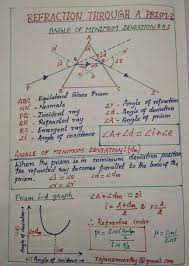 REFRACTION THROUGH A PRISM-2
ANGLE OF MINIMUM DEVIATION & R.I
A
ABC - Equilateral Glass Prism
NN - Normals
PQ - Incident ray
QR - Refracted ray
RS - Emergent ray
∠i - Angle of incidence
∠r - Angle of refraction
∠d - Angle of deviation
∠A - Angle of prism
∠A+∠d = ∠i+∠e
ANGLE OF MINIMUM DEVIATION (dm)
When the prism is in minimum deviation position
the refracted ray becomes parallel to the base of the
prism.
i-d graph
∠A+dm = 2i
i = A+dm / 2
Refractive index
μ = sin(A+dm / 2) / sin A/2
μ = sini / sinr
Angle of incidence